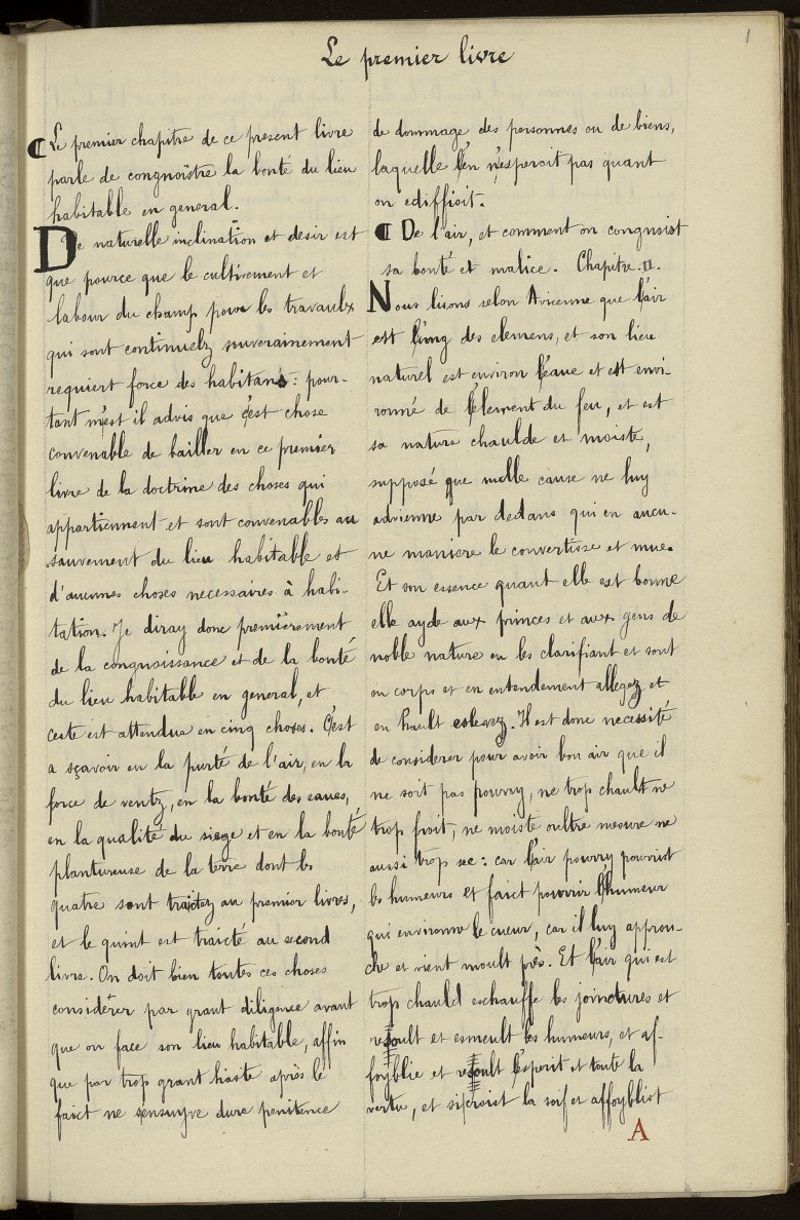 1
Le premier livre
¶ Le premier chapitre de ce present livre
parle de congnoistre la bonté du lieu
habitable en general.
De naturelle inclination et desir est
que pource que le cultivement et
labeur du champ pour les travaulx
qui sont continuelz souverainement
requiert force des habitans: pour-
tant m'est il advis que c'est chose
convenable de bailler en ce premier
livre de la doctrine des choses qui
appartiennent et sont convenables au
sauvement du lieu habitable et
d'aucunes choses necessaires à habi-
tation. Je diray donc premierement
de la congnoissance et de la bonté
du lieu habitable en general, et
ceste est attendue en cinq choses. C'est
a sçavoir en la purté de l'air, en la
force de ventz, en la bonté des eaues,
en la qualité du siege et en la bonté
plantureuse de la terre dont les
quatre sont traictez au premier livres,
et le quint est traicté au second
livre. On doit bien toutes ces choses
considérer par grant diligence avant
que on face son lieu habitable, affin
que par trop grant haste après le
faict ne s'ensuyve dure penitence
de dommage des personnes ou de biens,
laquelle l'en n'esperoit pas quant
on ediffioit.
¶ De l'air, et comment on congnoist
sa bonté et malice. Chapitre .II.
Nous lisons selon Avicenne que l'air
est l'ung des elemens, et son lieu
naturel est environ l'eaue et est envi-
ronné de l'element du feu, et est
sa nature chaulde et moiste,
supposé que nulle cause ne luy
advienne par dedans qui en aucu-
ne maniere le convertisse et mue.
Et son essence quant elle est bonne
elle ayde aux princes et aux gens de
noble nature en les clarifiant et sont
ou corps et en entendement allegez et
en hault eslevez. Il est donc necessité
de considerer pour avoir bon air que il
ne soit pas pourry, ne trop chault ne
trop froit, ne moiste oultre mesure ne
aussi trop sec: car l'air pourry pourrist
les humeurs et faict pourrir l'humeur
qui environne le cueur, car il luy approu-
che et vient moult près. Et l'air qui est
trop chauld eschauffe les joinctures et
resoult et esmeult les humeurs, et af-
foyblie et resoult l'esperit et toute la
vertu, et si croist la soif et affoyblist
A